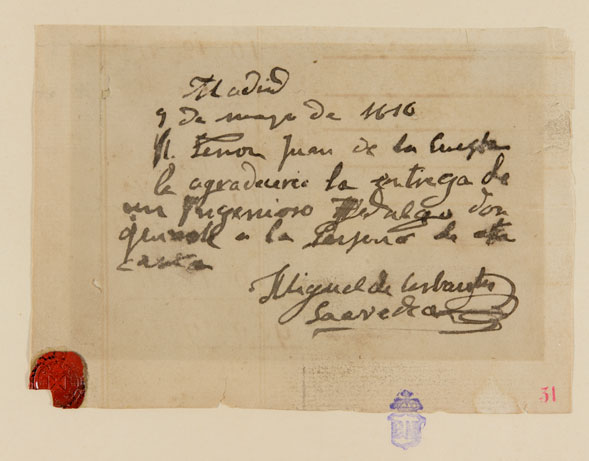 Madrid
9 de mayo de 1610
Sr. Señor Juan de la Cuesta
le agradecere la entrega de
un Yngenioso Hidalgo don
quixote a la persona de esta
carta
Miguel de Cerbantes
Saavedra
51